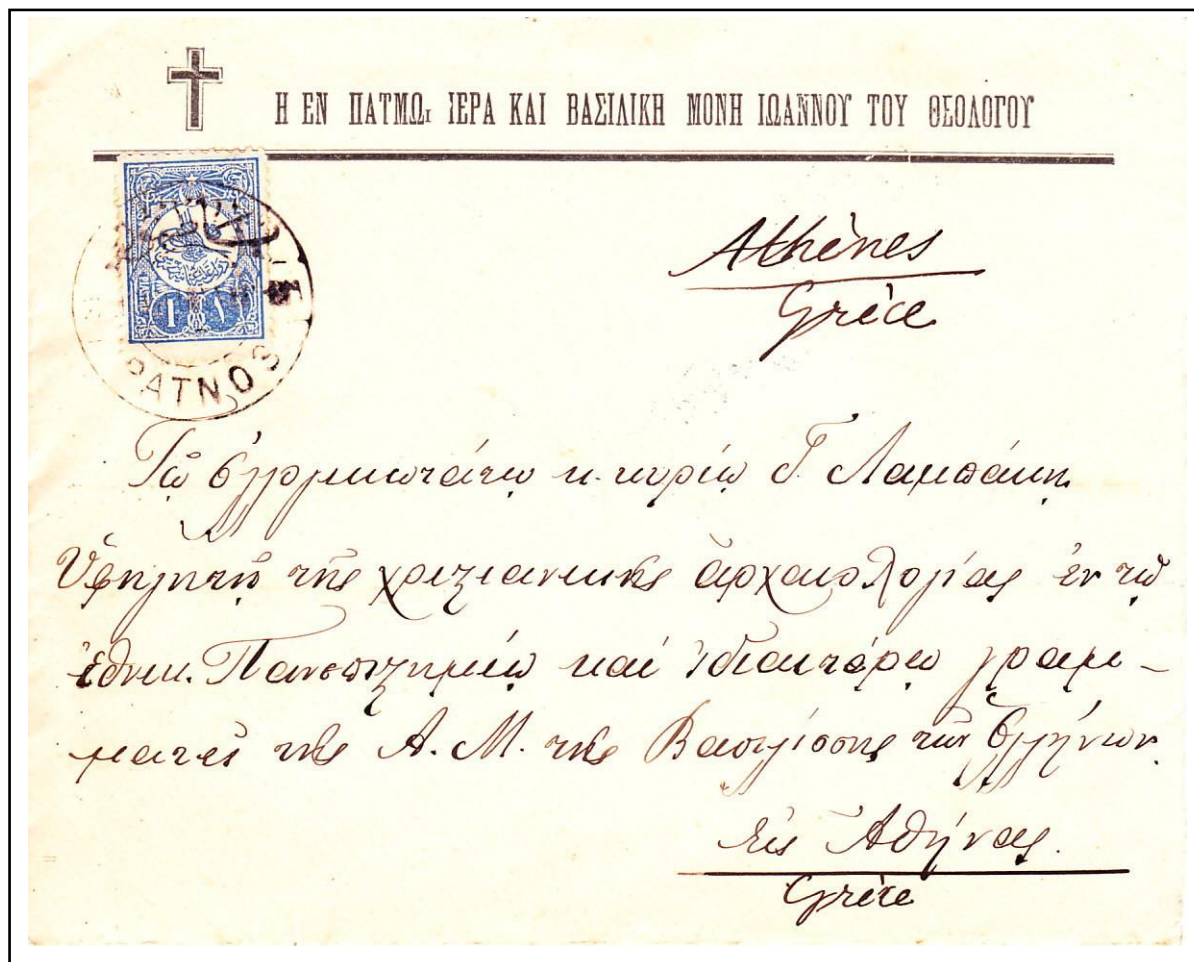 Η ΕΝ ΠΑΤΜΩι ΙΕΡΑ ΚΑΙ ΒΑΣΙΛΙΚΗ ΜΟΝΗ ΙΩΑΝΝΟΥ ΤΟΥ ΘΕΟΛΟΓΟΥ
PATNOS
Athènes
Grèce
Τῷ ἐλλογιμωτάτῳ κ. κυρίῳ Γ. Λαμπάκῃ
Ὑφηγητῇ τῆς χριστιανικῆς ἀρχαιολογίας ἐν τῷ
ἐθνικ. Πανεπιστημίῳ καὶ ἰδιαιτέρῳ γραμ-
ματεῖ τῆς Α. Μ. τῆς Βασιλίσσης τῶν Ἑλλήνων.
εἰς Ἀθήνας.
Grèce